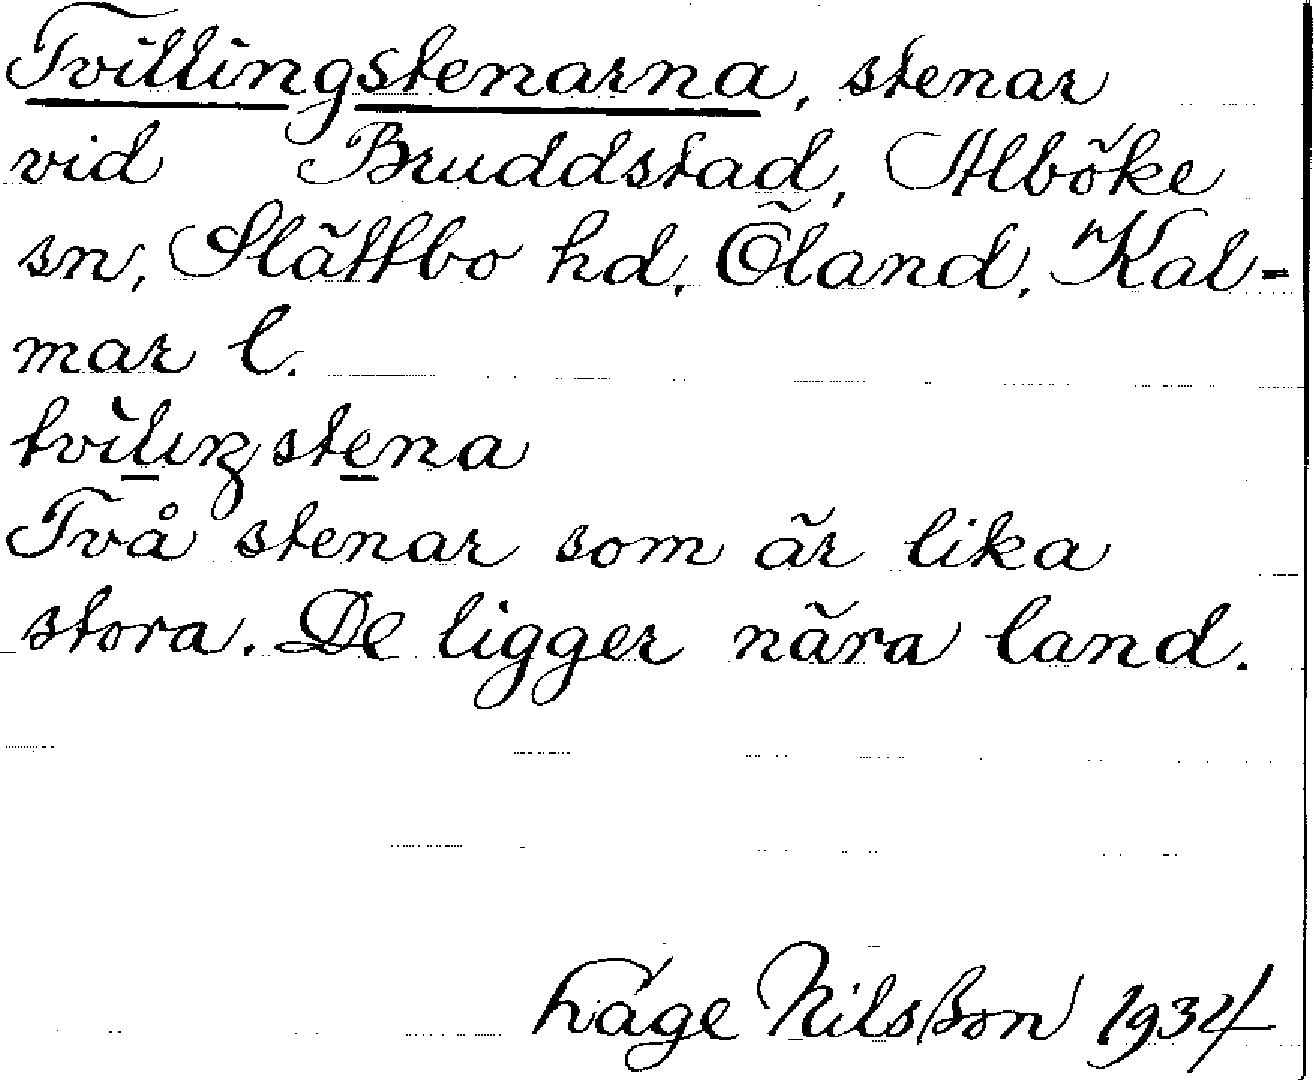 Tvillingstenarna, stenar
vid Bruddstad, Alböke
sn, Slättbo hd, Öland, Kal-
mar l.
stena
Två stenar som är lika
stora. De ligger nära land.
Nilsson 1934